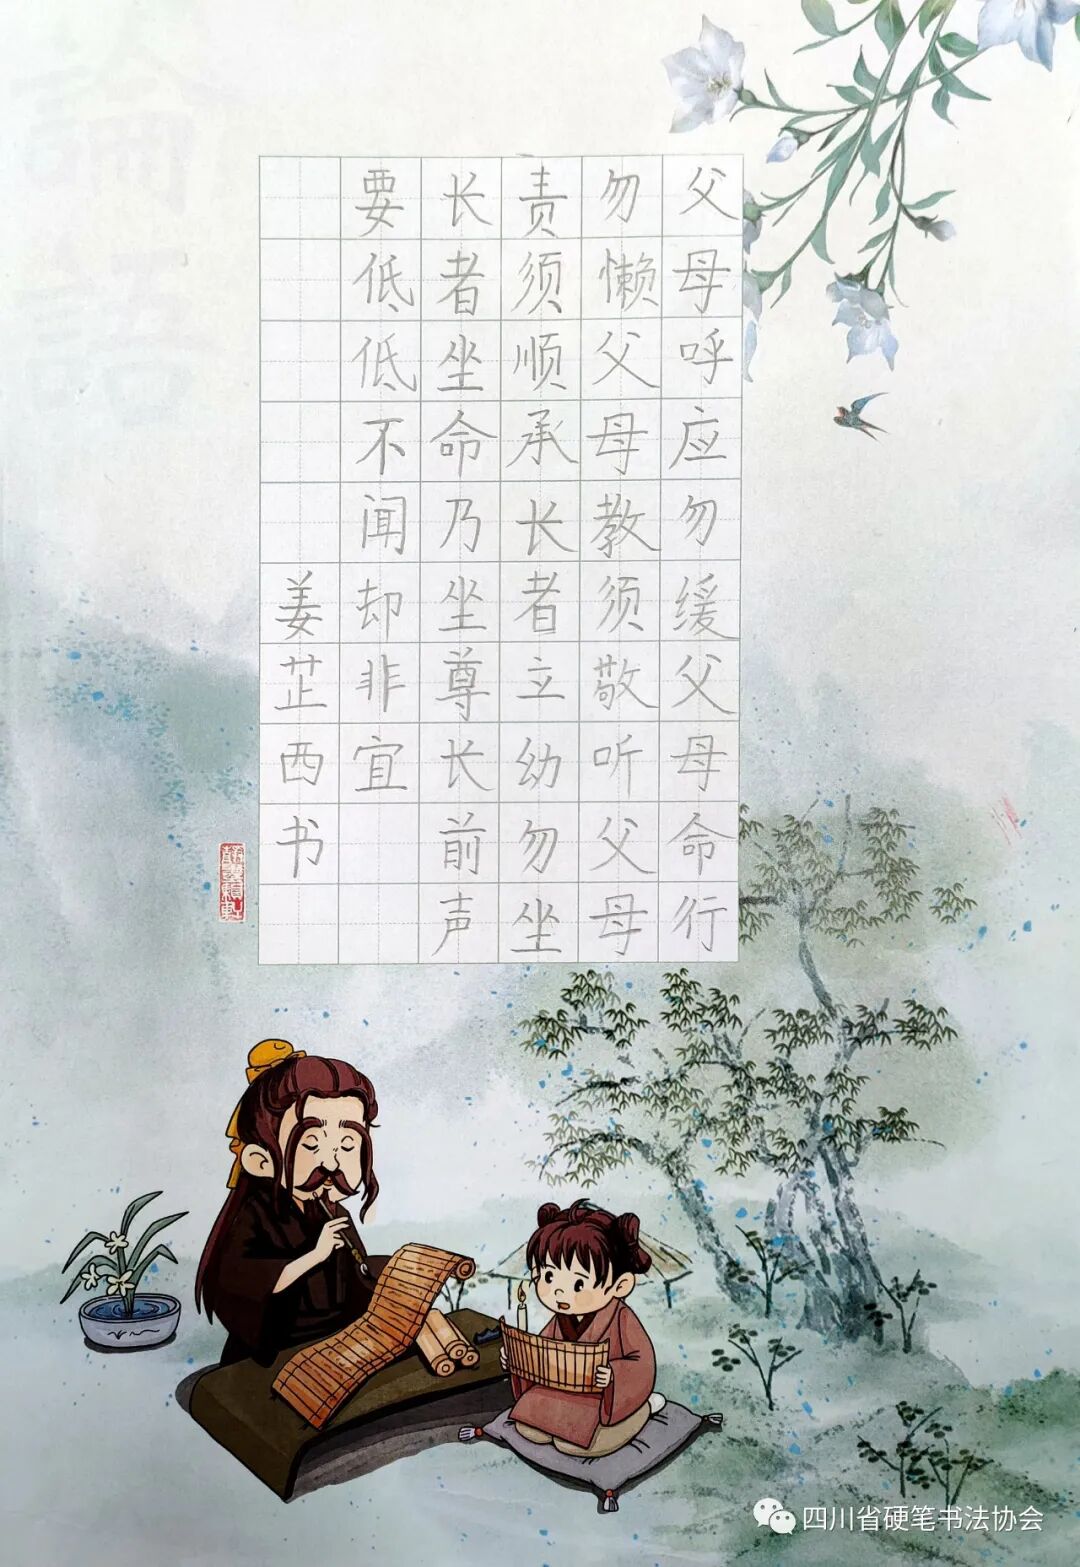 父母呼应勿缓父母命行
勿懒父母教须敬听父母
责须顺承长者立幼勿坐
长者坐命乃坐尊长前声
要低低不闻却非宜
姜芷西书
四川省硬笔书法协会